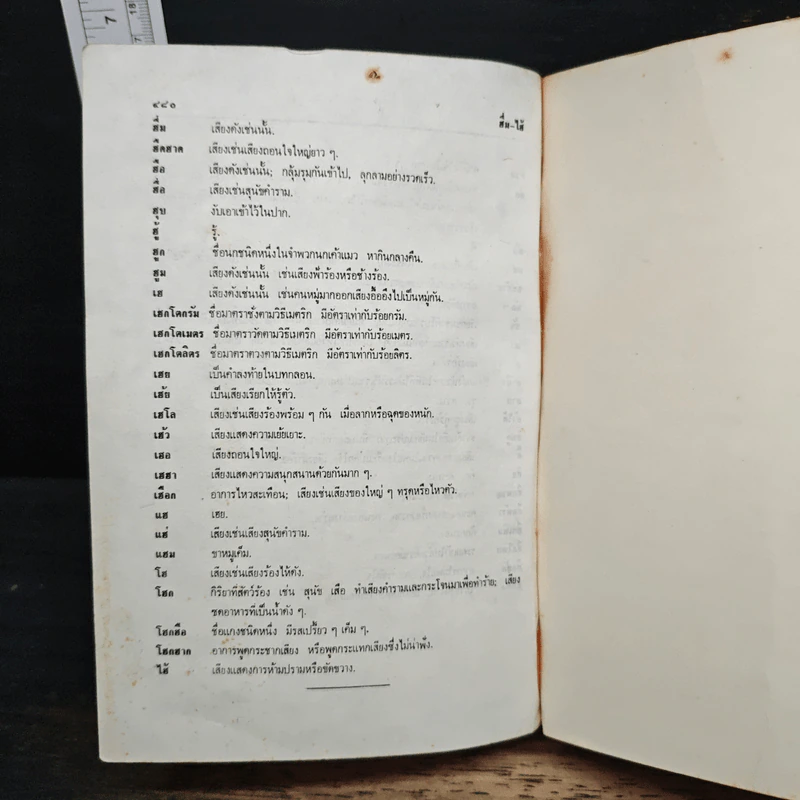 ๔๘๐
ฮึ่ม-ไฮ้
ฮึ่ม เสียงดังเช่นนั้น.
ฮืดฮาด เสียงเช่นเสียงถอนใจใหญ่ยาว ๆ.
ฮือ เสียงดังเช่นนั้น; กลุ้มรุมกันเข้าไป, ลุกลามอย่างรวดเร็ว.
ฮื่อ เสียงเช่นสุนัขคำราม.
ฮุบ งับเอาเข้าไว้ในปาก.
ฮู้ รู้.
ฮูก ชื่อนกชนิดหนึ่งในจำพวกนกเค้าแมว หากินกลางคืน.
ฮูม เสียงดังเช่นนั้น เช่นเสียงฟ้าร้องหรือช้างร้อง.
เฮ เสียงดังเช่นนั้น เช่นคนหมู่มากออกเสียงอื้ออึงไปเป็นหมู่กัน.
เฮกโตกรัม ชื่อมาตราชั่งตามวิธีเมตริก มีอัตราเท่ากับร้อยกรัม.
เฮกโตเมตร ชื่อมาตราวัดตามวิธีเมตริก มีอัตราเท่ากับร้อยเมตร.
เฮกโตลิตร ชื่อมาตราตวงตามวิธีเมตริก มีอัตราเท่ากับร้อยลิตร.
เฮย เป็นคำลงท้ายในบทกลอน.
เฮ้ย เป็นเสียงเรียกให้รู้ตัว.
เฮโล เสียงเช่นเสียงร้องพร้อม ๆ กัน เมื่อลากหรือฉุดของหนัก.
เฮ้ว เสียงแสดงความเย้ยเยาะ.
เฮอ เสียงถอนใจใหญ่.
เฮฮา เสียงแสดงความสนุกสนานด้วยกันมาก ๆ.
เฮือก อาการไหวสะเทือน; เสียงเช่นเสียงของใหญ่ ๆ ทรุดหรือไหวตัว.
แฮ เฮย.
แฮ่ เสียงเช่นเสียงสุนัขคำราม.
แฮม ขาหมูเค็ม.
โฮ เสียงเช่นเสียงร้องไห้ดัง.
โฮก กิริยาที่สัตว์ร้อง เช่น สุนัข เสือ ทำเสียงคำรามและกระโจนมาเพื่อทำร้าย; เสียง
ซดอาหารที่เป็นน้ำดัง ๆ.
โฮกฮือ ชื่อแกงชนิดหนึ่ง มีรสเปรี้ยว ๆ เค็ม ๆ.
โฮกฮาก อาการพูดกระชากเสียง หรือพูดกระแทกเสียงซึ่งไม่น่าฟัง.
ไฮ้ เสียงแสดงการห้ามปรามหรือขัดขวาง.
7
18